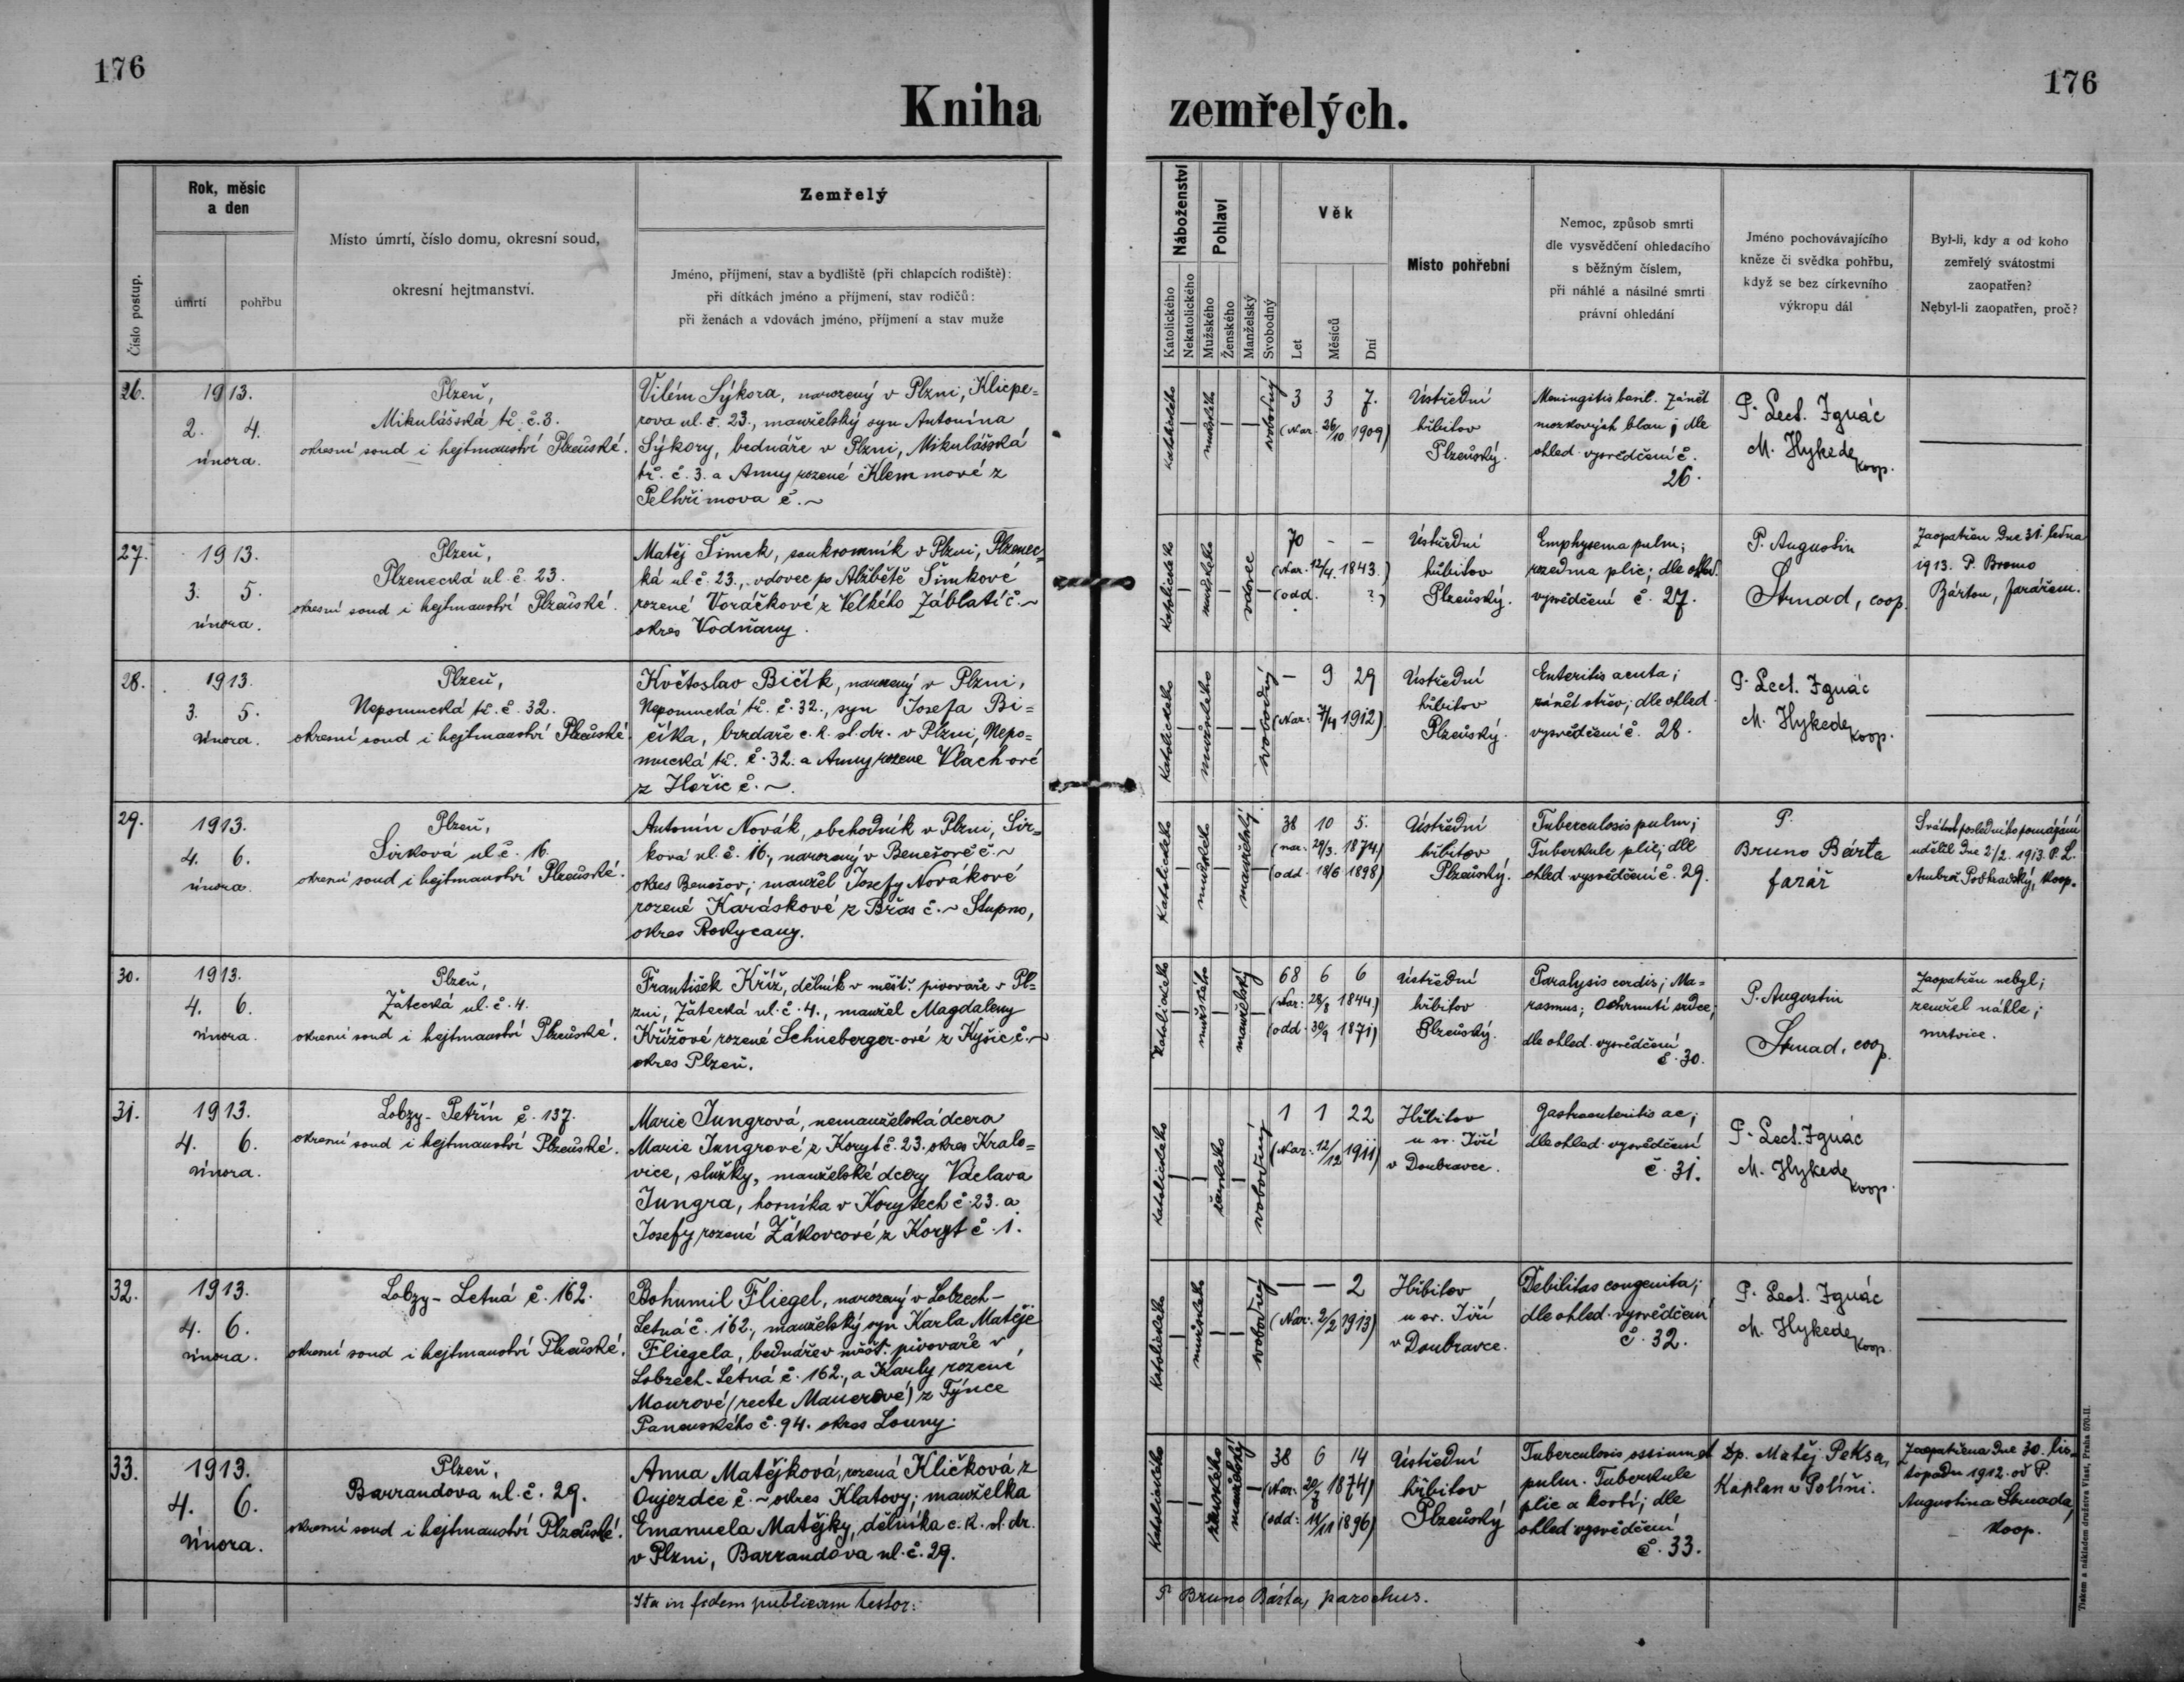 176
176
Kniha zemřelých.
Číslo postup.
Rok, měsíc
a den
úmrtí
pohřbu
Místo úmrtí, číslo domu, okresní soud,
okresní hejtmanství.
Zemřelý
Jméno, příjmení, stav a bydliště (při chlapcích rodiště):
při dítkách jméno a příjmení, stav rodičů:
při ženách a vdovách jméno, příjmení a stav muže
Náboženství
Katolického
Nekatolického
Pohlaví
Mužského
Ženského
Manželský
Svobodný
Věk
Let
Měsíců
Dní
Místo pohřební
Nemoc, způsob smrti
dle vysvědčení ohledacího
s běžným číslem,
při náhlé a násilné smrti
právní ohledání
Jméno pochovávajícího
kněze či svědka pohřbu,
když se bez církevního
výkropu dál
Byl-li, kdy a od koho
zemřelý svátostmi
zaopatřen?
Nebyl-li zaopatřen, proč?
26.
1913.
2. 4.
února.
Plzeň,
Mikulášská tř. č. 3.
okresní soud i hejtmanství Plzeňské.
Vilém Sýkora, narozený v Plzni, Klicpe=
rova ul. č. 23., manželský syn Antonína
Sýkory, bednáře v Plzni, Mikulášská
tř. č. 3. a Anny rozené Klemmové z
Pelhřimova č. ~
katolického
mužského
svobodný
3 3 7.
(Nar. 26/10 1909)
Ústřední
hřbitov
Plzeňský.
Meningitis basil. Zánět
mozkových blan; dle
ohled. vysvědčení č.
26.
P. Lect. Ignác
M. Hykede
koop.
27.
1913.
3. 5.
února.
Plzeň,
Plzenecká ul. č. 23.
okresní soud i hejtmanství Plzeňské.
Matěj Šimek, soukromník v Plzni, Plzenec=
ká ul. č. 23., vdovec po Alžbětě Šimkové
rozené Voráčkové z Velkého Záblatí č. ~
okres Vodňany.
Katolického
mužského
vdovec
70 - -
(Nar. 12/4. 1843.)
(odd. ?)
Ústřední
hřbitov
Plzeňský.
Emphysema pulm;
rozedma plic; dle ohled.
vysvědčení č. 27.
P. Augustin
Strnad, coop.
Zaopatřen dne 31. ledna
1913. P. Bruno
Bártou, farářem.
28.
1913.
3. 5.
února.
Plzeň,
Nepomucká tř. č. 32.
okresní soud i hejtmanství Plzeňské.
Květoslav Bičík, narozený v Plzni,
Nepomucká tř. č. 32., syn Josefa Bi=
číka, brzdaře c. k. st. dr. v Plzni, Nepo=
mucká tř. č. 32. a Anny rozené Vlach-ové
z Hořic č. ~.
Katolického
mužského
svobodný
- 9 29
(Nar: 7/4 1912)
Ústřední
hřbitov
Plzeňský.
Enteritis acuta;
zánět střev; dle ohled.
vysvědčení č. 28.
P. Lect. Ignác
M. Hykede
koop.
29.
1913.
4. 6.
února.
Plzeň,
Sirková ul. č. 16.
okresní soud i hejtmanství Plzeňské.
Antonín Novák, obchodník v Plzni, Sir=
ková ul. č. 16., narozený v Benešově č. ~
okres Benešov; manžel Josefy Novákové
rozené Karáskové z Břas č. ~ Stupno,
okres Rokycany.
Katolického
mužského
manželský
38 10 5.
(nar: 29/3. 1874)
(odd. 18/6 1898)
Ústřední
hřbitov
Plzeňský.
Tuberculosis pulm;
Tuberkule plic; dle
ohled. vysvědčení č. 29.
P.
Bruno Bárta
farář
Svátost posledního pomazání
udělil dne 2./2. 1913. P. L.
koop.
30.
1913.
4. 6.
února.
Plzeň,
Žatecká ul. č. 4.
okresní soud i hejtmanství Plzeňské.
František Kříž, dělník v měšť. pivovaře v Pl=
zni, Žatecká ul. č. 4., manžel Magdaleny
Křížové rozené Schneberger-ové z Kyšic č. ~
okres Plzeň.
Katolického
mužského
manželský
68 6 6
(Nar: 28/8 1844)
(odd. 30/9 1871)
Ústřední
hřbitov
Plzeňský.
Paralysis cordis; Ma=
rasmus; Ochrnutí srdce;
dle ohled. vysvědčení
č. 30.
P. Augustin
Strnad, coop.
Zaopatřen nebyl;
zemřel náhle;
mrtvice.
31.
1913.
4. 6.
února.
Lobzy-Petřín č. 137.
okresní soud i hejtmanství Plzeňské.
Marie Jungrová, nemanželská dcera
Marie Jungrové z Koryt č. 23. okres Kralo=
vice, služky, manželské dcery Václava
Jungra, horníka v Korytech č. 23. a
Josefy rozené Žákovcové z Koryt č. 1.
Katolického
ženského
svobodný
1 1 22
(Nar: 12/12 1911)
Hřbitov
u sv. Jiří
v Doubravce.
Gastroenteritis ac;
dle ohled. vysvědčení
č. 31.
P. Lect. Ignác
M. Hykede
koop.
32.
1913.
4. 6.
února.
Lobzy-Letná č. 162.
okresní soud i hejtmanství Plzeňské.
Bohumil Fliegel, narozený v Lobzech-
Letná č. 162., manželský syn Karla Matěje
Fliegela, bednáře v měšť. pivovaře v
Lobzech-Letná č. 162., a Karly rozené
Mourové (recte Mauerové) z Týnce
Panenského č. 94. okres Louny.
Katolického
mužského
svobodný
- - 2
(Nar: 2/2 1913)
Hřbitov
u sv. Jiří
v Doubravce.
Debilitas congenita;
dle ohled. vysvědčení
č. 32.
P. Lect. Ignác
M. Hykede
koop.
33.
1913.
4. 6.
února.
Plzeň,
Barrandova ul. č. 29.
okresní soud i hejtmanství Plzeňské.
Anna Matějková, rozená Kličková z
Oujezdce č. ~ okres Klatovy; manželka
Emanuela Matějky, dělníka c. k. st. dr.
v Plzni, Barrandova ul. č. 29.
Katolického
ženského
manželský
38 6 14
(Nar: 20/7 1874)
(odd: 11/11 1896)
Ústřední
hřbitov
Plzeňský
Tuberculosis ossium et
pulm. Tuberkule
plic a kostí; dle
ohled. vysvědčení
č. 33.
Dp. Matěj Peksa,
Kaplan v Políni.
Zaopatřena dne 30. lis=
topadu 1912. od P.
Augustina Strnada,
koop.
Ita in fidem publicam testor:
P. Bruno Bárta, parochus.
Tiskem a nákladem družstva Vlast, Praha 570-II.